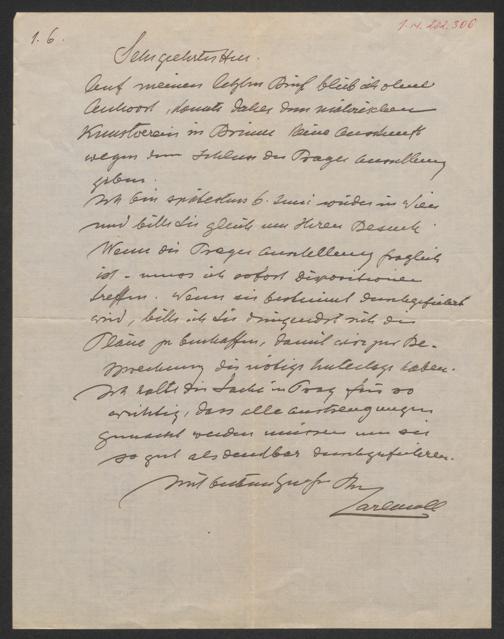 1. 6.
I.N. 202.306
Sehr geehrter Herr.
Auf meinen letzten Brief blieb ich ohne
Antwort, konnte daher dem mährischen
Kunstverein in Brünn keine Auskunft
wegen dem Schluss der Prager Ausstellung
geben.
Ich bin spätestens 6. Juni wieder in Wien
und bitte Sie gleich um Ihren Besuch.
Wenn die Prager Ausstellung fraglich
ist - muss ich sofort dispositionen
treffen. Wenn sie bestimmt durchgeführt
wird, bitte ich Sie dringendst sich die
Pläne zu beschaffen, damit wir zur Be-
sprechung die nötige Unterlage haben.
Ich halte die Sache in Prag für so
wichtig, dass alle Anstrengungen
gemacht werden müssen um sie
so gut als denkbar durchzuführen.
Mit bestem Gruss Ihr
Carl Moll